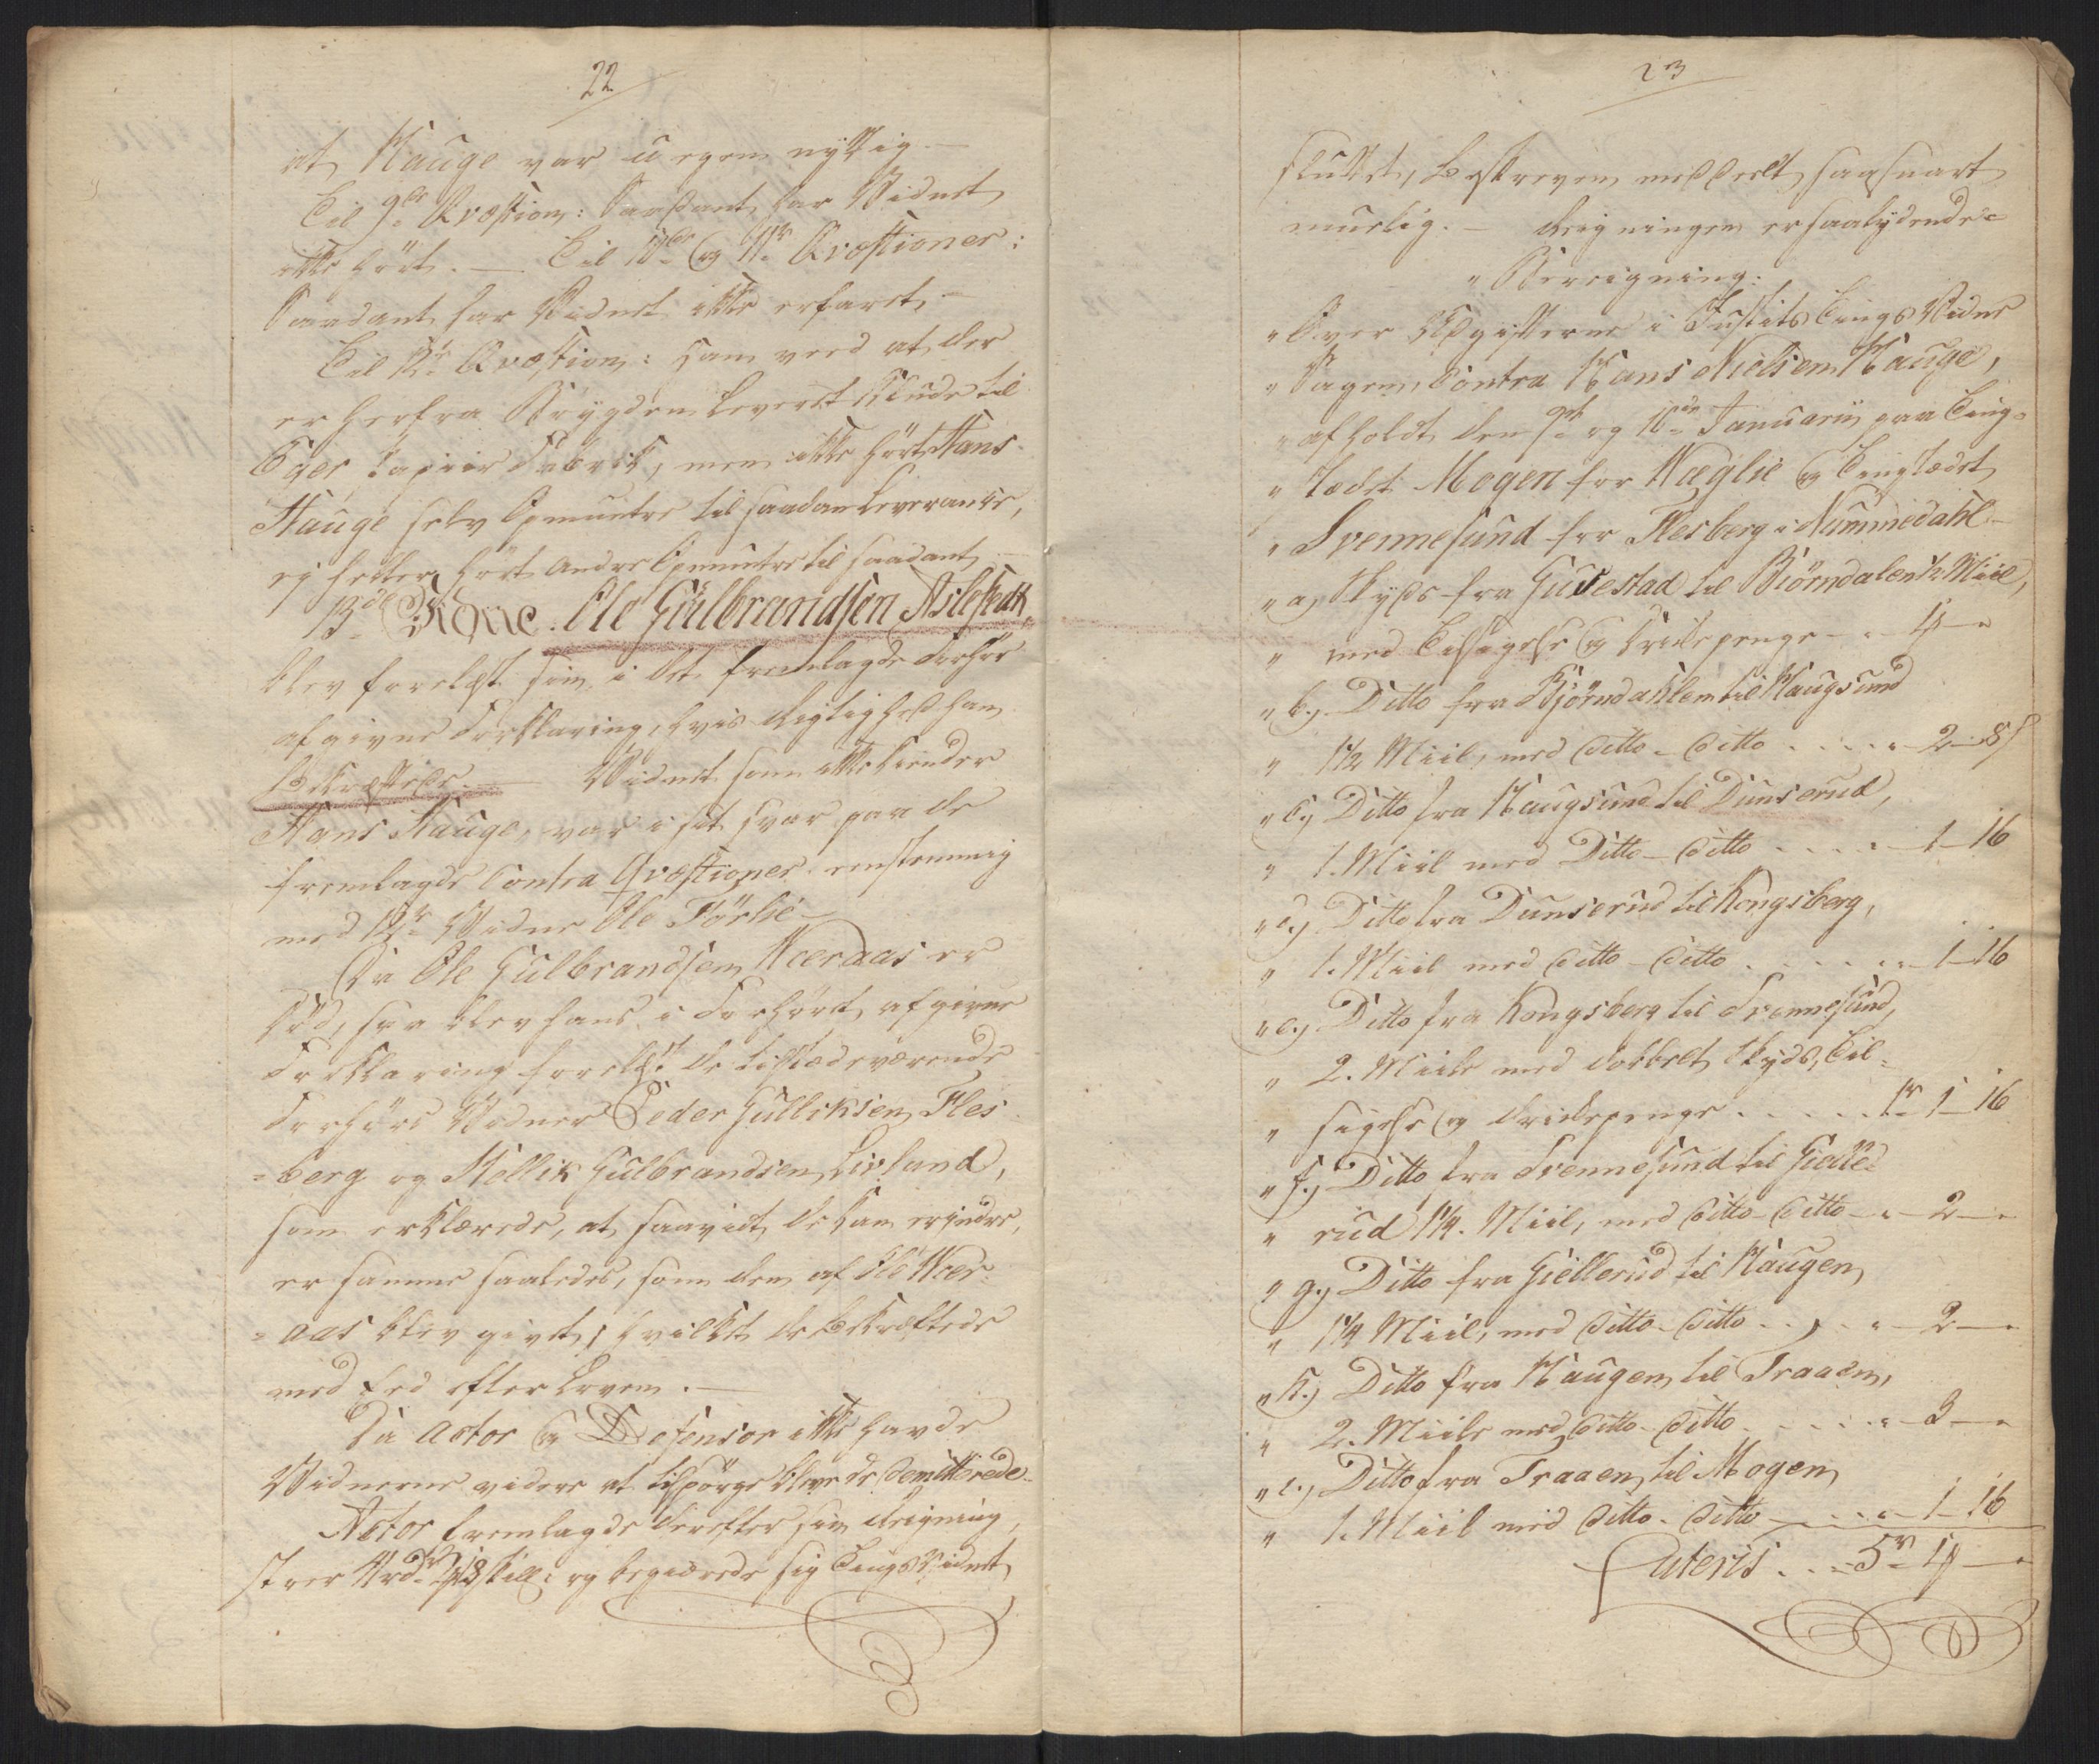 22
at Hauge var uegennyttig. —
Til 9de Qvæstion: Saadant har Vidnet
ikke hørt. — Til 10de og 11te Qvæstioner:
Saadant har Vidnet ikke erfaret. —
Til 12te Qvæstion: Han veed at der
er herfra Bøygden leveret Klude til
Eger Papiir Fabrik, men ikke hørt Hans
Hauge selv opmuntre til saadan Leverance,
ej heller hørt andre opmuntre til saadant —
13de Vidne. Ole Gulbrandsen Aslefedt,
blev forelæst sin i det fremlagde Forhør
afgivne Forklaring, hvis Rigtighed han
bekræftede. — Vidnet som ikke kiender
Hans Hauge, var i sit svar paa de
fremlagde Contra Qvæstioner eenstemmig
med 12te Vidne Ole Førlie —
Da Ole Gulbrandsen Wæraas er
død, saa blev hans i Forhøret afgivne
Forklaring forelæst de tilstædeværende
Forhørs Vidner Peder Gulliksen Fles-
=berg og Hellik Gulbrandsen Livland,
som erklærede, at saavidt de kan erindre,
er samme saaledes, som den af Ole Wær-
=aas blev givet, hvilket de bekræftede
med Eed efter Loven. —
Da Actor og Defensor ikke havde
Vidnerne videre at tilspørge bleve de demitterede.
Actor fremlagde derefter sin Reigning,
stor rd 18 skill: og begiærede sig Tingsvidnet
23
sluttet, beskreven meddeelt saasnart
muelig. — Reigningen er saalydende:
" Bereigning:
" Over Udgifterne i Justits Tings Vidne
" Sagen Contra Hans Nielsen Hauge,
" afholdt den 9de og 10de Januarii paa Ting-
" stædet Mogen for Wæglie og Tingstædet
" Svennesund for Flesberg i Nummedahl —
" a, Skyds fra Gusestad til Biörndalen 1/2 Miil,
" med Tilsigelse og Drikkepenge - " - 4 - "
" b.) Ditto fra Bjørndahlen til Haugsund
" 1 1/2 Miil, med Ditto - Ditto . . . . " - 2 - 8 s
" c.) Ditto fra Haugsund til Dunserud,
" 1. Miil med Ditto - Ditto . . . . " - 1 - 16
" d.) Ditto fra Dunserud til Kongsberg,
" 1. Miil med Ditto - Ditto . . . . . " - 1 - 16
" e.) Ditto fra Kongsberg til Svennesund,
" 2. Miile med dobbelt Skyds, Til-
" sigelse og Drikkepenge . . . . . 1r 1 - 16
" f.) Ditto fra Svennesund til Gielle-
" rud 1 1/4. Miil, med Ditto - Ditto - " - 2 - "
" g.) Ditto fra Giellerud til Haugen,
" 1 1/4 Miil, med Ditto - Ditto . . . . " - 2 - "
" h.) Ditto fra Haugen til Traaen,
" 2. Miile med Ditto - Ditto . . . . " - 3 - "
" i.) Ditto fra Traaen til Mogen
" 1. Miil med Ditto - Ditto . . . . " - 1 - 16
Lateris . . . 5r 4 - "